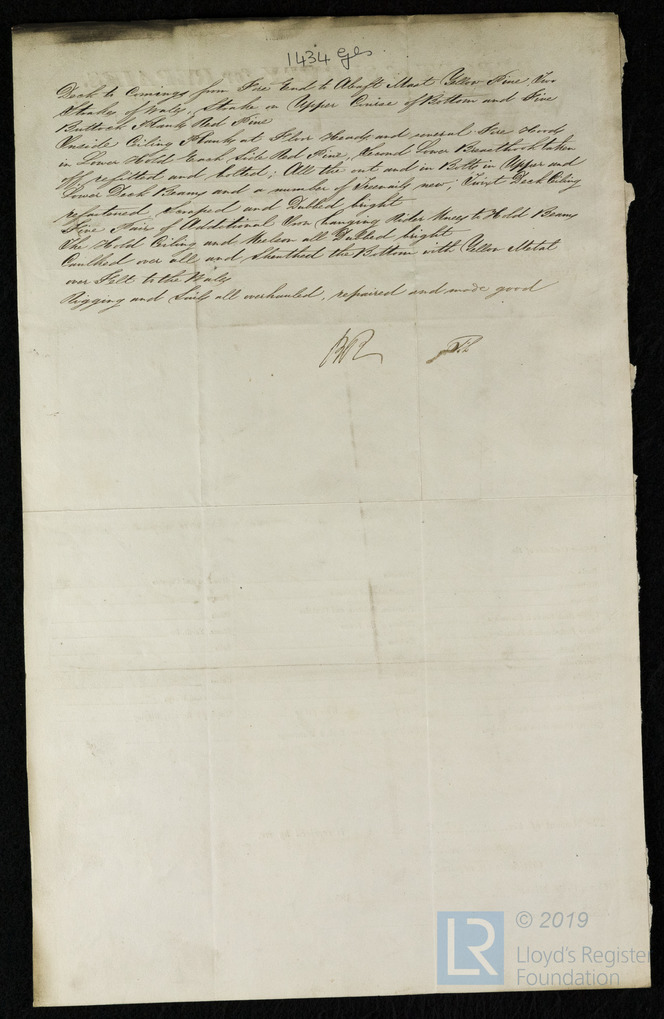 1434 Gls
Deck to Comings from Fore End to Abaft Mast Yellow Pine, Two
Strakes of Wales, Strake on Upper Course of Bottom and Five
Buttock Planks Red Pine
Inside Ceiling Planks at Floor Heads and several Fore Hoods
in Lower Hold Each Side Red Pine, Second Lower Breasthook taken
off refitted and bolted; All the out and in Bolts in Upper and
Lower Deck Beams and a number of Treenails new; Twixt Deck Ceiling
refastened, Scraped and Dubbed bright
Five Pair of Additional Iron hanging Rider Knees to Hold Beams
The Hold Ceiling and Kelson all Dubbed bright
Caulked over all, and Sheathed the Bottom with Yellow Metal
over Felt to the Wales
Rigging and Sails all overhauled, repaired and made good
© 2019
LR
Lloyd's Register
Foundation